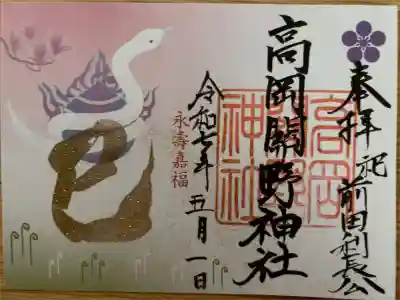 奉拝
祀前田利長公
高岡關野神社
高岡
關野
神社
令和七年五月一日
永壽嘉福
巳